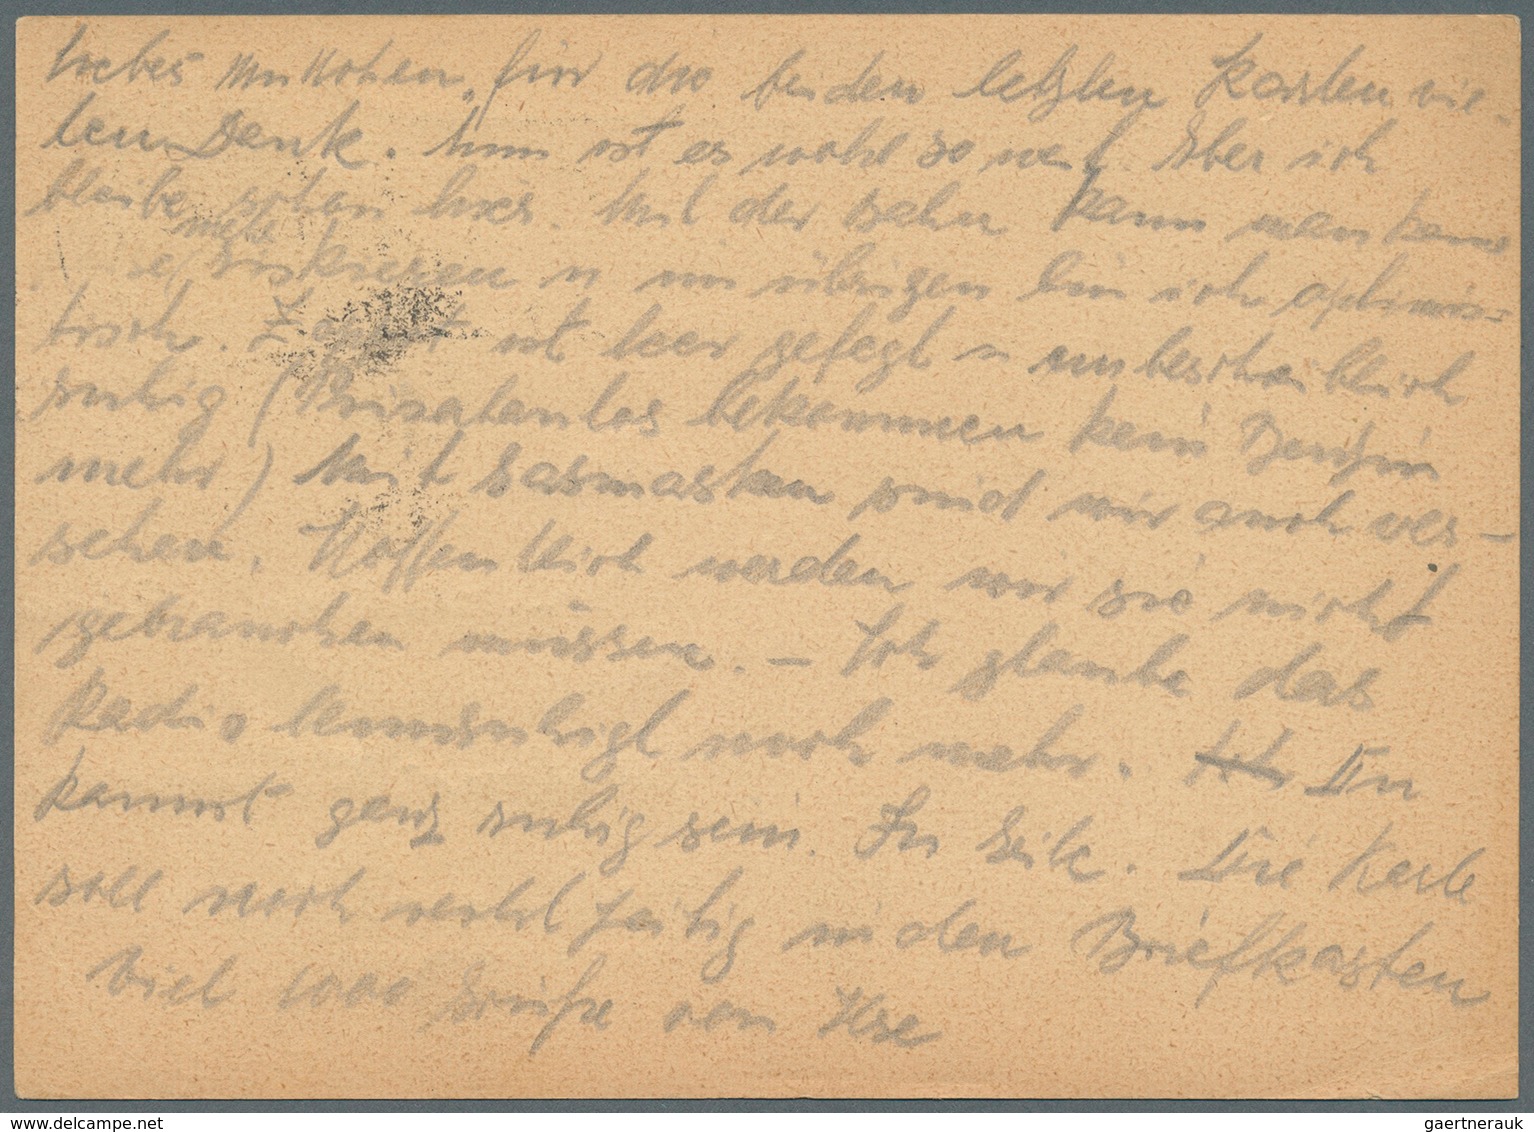 Liebes Muttchen, für die beiden letzten Karten vie-
len Dank. Nun ist es wohl so weit. Aber ich
bleibe schon hier. Mit der Bahn kann man kaum
mehr
riskieren u im übrigen bin ich optimis=
tisch. ist leer gefegt u unbeschreiblich
ruhig (Privatautos bekommen kein Benzin
mehr) Mit Gasmasken sind wir auch ver-
sehen. Hoffentlich werden wir sie nicht
gebrauchen müssen. – Ich glaube das
Radio beunruhigt noch mehr. Ich Du
kannst ganz ruhig sein. In Eile. Die Karte
soll noch rechtzeitig in den Briefkasten
Viel 1000 Grüße von Ilse
gaertnerauk